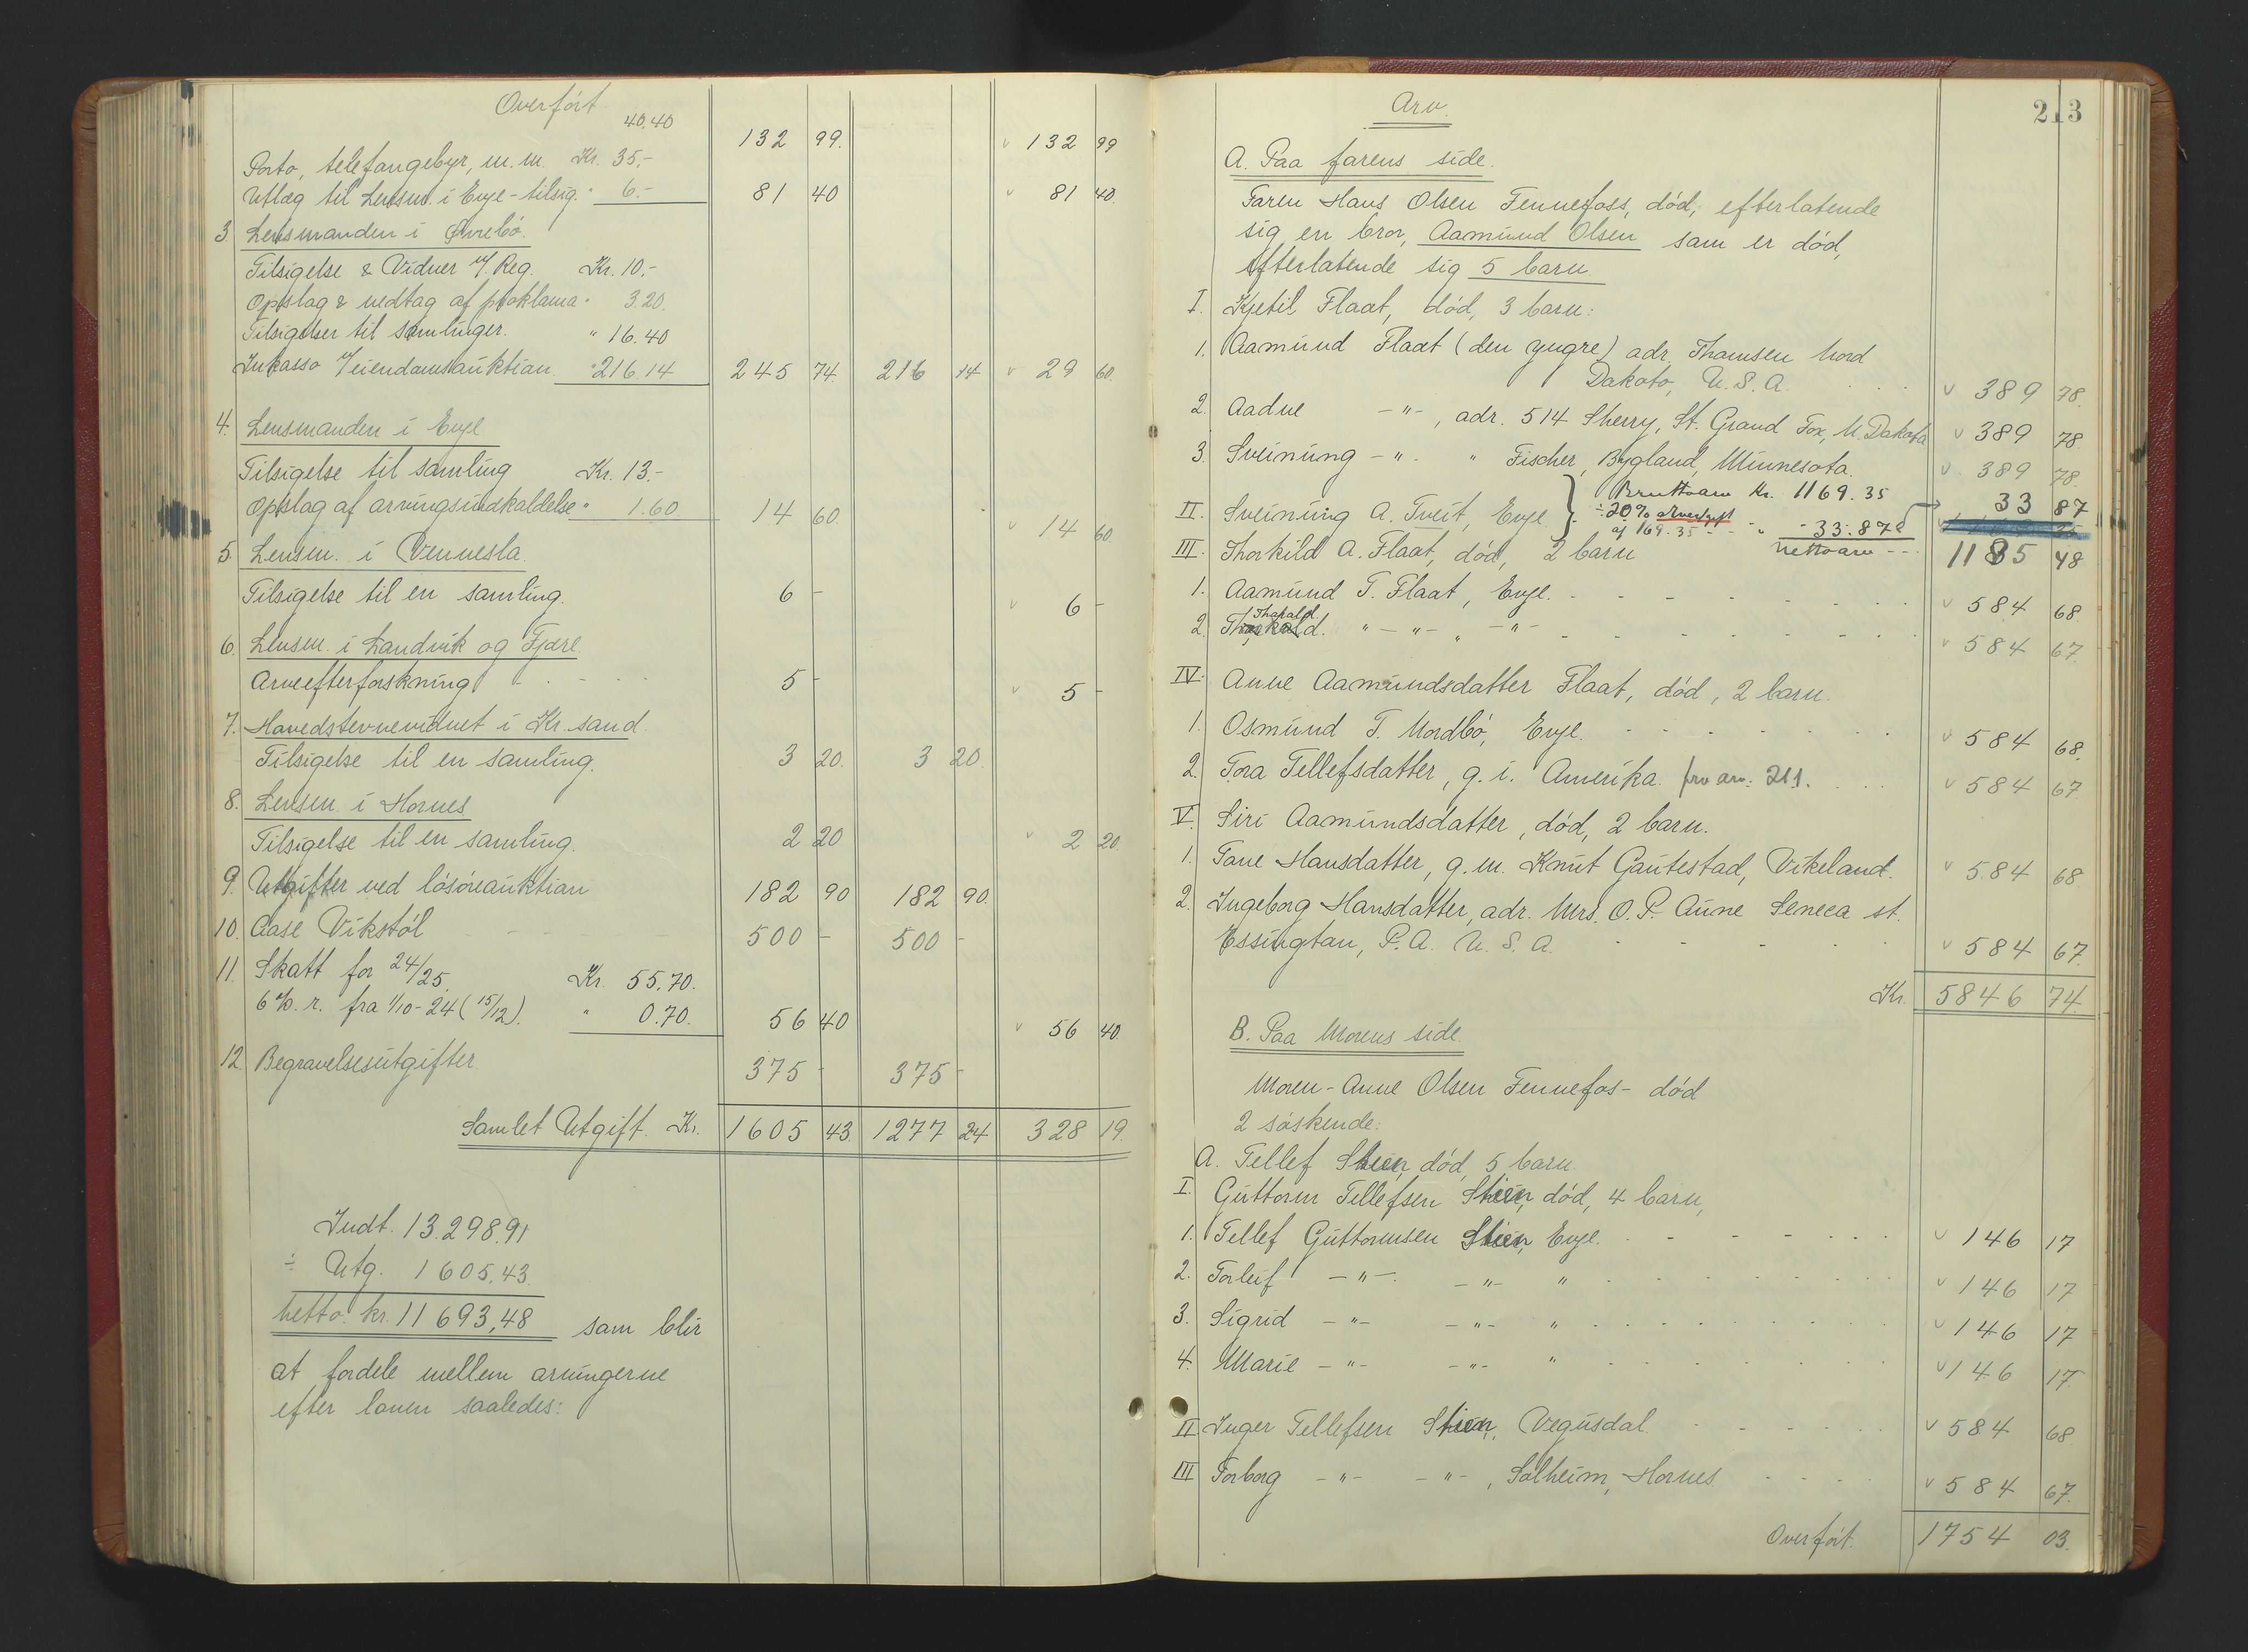 Overført
40.40
132 99. v 132 99
Porto, telefongebyr, m.m. Kr. 35.-
Utlæg til Lensm. i Evje - tilsig. " 6.- 81 40 v 81 40.
3. Lensmanden i Øvrebö.
Tilsigelse & Vidner v/ Reg. Kr. 10.-
Opslag & nedtag af proklama " 3.20.
Tilsigelser til samlinger. " 16.40
Inkasso v/ eiendomsauktion " 216.14 245 74. 216 14 v 29 60.
4. Lensmanden i Evje
Tilsigelse til samling Kr. 13.-
Opslag af arvingsindkaldelse " 1.60 14 60. v 14 60.
5. Lensm. i Vennesla.
Tilsigelse til en samling. 6 - v 6 -
6. Lensm. i Landvik og Fjære.
Arveefterforskning 5 - v 5 -
7. Hovedstevnevidnet i Kr.sand.
Tilsigelse til en samling. 3 20. 3 20.
8. Lensm. i Hornes
Tilsigelse til en samling. 2 20 v 2 20.
9. Utgifter ved lösöreauktion 182 90 182 90.
10. Aase Vikstöl 500 - 500 -
11. Skatt for 24/25. Kr. 55.70.
6% r. fra 1/10-24 (15/12). " 0.70. 56 40 v 56 40.
12. Begravelsesutgifter. 375 - 375 -
Samlet Utgift. Kr. 1605 43. 1277 24 328 19.
Indt. 13.298.91
÷ Utg. 1605,43.
netto. kr. 11693,48 som blir
at fordele mellem arvingerne
efter loven saaledes:
213
Arv.
A. Paa farens side.
Faren Hans Olsen Fennefoss, död, efterlatende
sig en bror, Aamund Olsen som er död,
efterlatende sig 5 barn.
I. Kjetil Flaat, död, 3 barn:
1. Aamund Flaat (den yngre) adr. Thomsen Nord
Dakota, U.S.A. v 389 78.
2. Aadne -"-, adr. 514 Sherry, St. Grand Fox, N. Dakota v 389 78.
3. Sveinung -"- " Fischer, Bygland, Minnesota. v 389 78.
Bruttoarv Kr. 1169.35
II. Sveinung A. Tveit, Evje } ÷ 20% arveavgift 33 87
af 169.35 - - " - 33.87
nettoarv - - 1135 48
III. Thorkild A. Flaat, död, 2 barn
1. Aamund T. Flaat, Evje. v 584 68.
Thorald
2. " -"- " -"- v 584 67.
IV. Anne Aamundsdatter Flaat, död, 2 barn.
1. Osmund T. Nordbö, Evje. v 584 68.
2. Tora Tellefsdatter, g. i. Amerika. 211. v 584 67
V. Siri Aamundsdatter, död, 2 barn.
1. Tone Hansdatter, g. m. Knut Gautestad, Vikeland. v 584 68
2. Ingeborg Hansdatter, adr. Mrs. O. P. Aune Seneca st.
Essington, P.A. U.S.A. v 584 67.
Kr. 5846 74.
B. Paa Morens side.
Moren - Anne Olsen Fennefos - död
2 söskende:
A. Tellef Stien, död, 5 barn
I. Guttorm Tellefsen Stien, död, 4 barn,
1. Tellef Guttormsen Stien, Evje. v 146 17
2. Torleif -"- -"- " v 146 17
3. Sigrid -"- -"- " v 146 17
4. Marie -"- -"- " v 146 17.
II Inger Tellefsen Stien, Vegusdal v 584 68.
III Torborg -"- -"-, Solheim, Hornes v 584 67.
Overført. 1754 03.